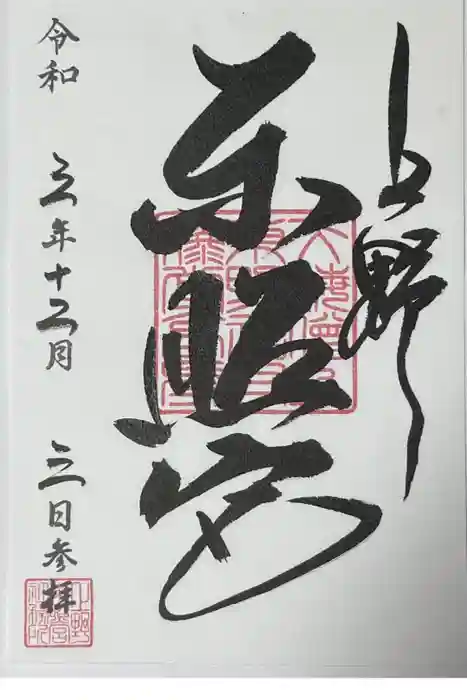 上野
東照宮
令和 五年十二月 三日参拝